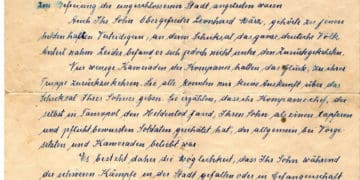 zur Befreiung der eingeschlossenen Stadt angetreten waren
Auch Ihr Sohn Obergefreiter Leonhard März, gehörte zu jenen
helden haften Verteidigern, an deren Schicksal das ganze deutsche Volk
Anteil nahm. Leider befand er sich jedoch nicht unter den Zurückgekehrten.
Nur wenige Kameraden der Kompanie hatten das Glück, zu ihrer
Truppe zurückzukehren. Sie alle konnten nur keine Auskunft über das
Schicksal Ihres Sohnes geben. Sie erzählten, dass ihr Kompaniechef, der
selbst in Tarnopol den Heldentod fand, Ihren Sohn als einen tapferen
und pflichtbewussten Soldaten geschätzt hat, der allgemein bei Vorge-
setzten und Kameraden beliebt war
Es besteht daher die Möglichkeit, dass Ihr Sohn während
der schweren Kämpfe in der Stadt gefallen oder in Gefangenschaft